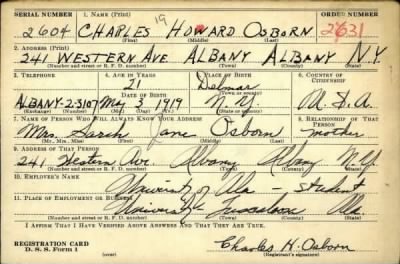 SERIAL NUMBER 1. NAME (Print) ORDER NUMBER
2604 CHARLES HOWARD OSBORN 2631
(First) (Middle) (Last)
2. ADDRESS (Print)
241 WESTERN AVE ALBANY ALBANY N.Y.
(Number and street or R. F. D. number) (Town) (County) (State)
3. TELEPHONE 4. AGE IN YEARS 5. PLACE OF BIRTH 6. COUNTRY OF CITIZENSHIP
21 Delmar
DATE OF BIRTH (Town or county)
ALBANY-2-3107 May 3 1919 N.Y. U.S.A.
(Exchange) (Number) (Mo.) (Day) (Yr.) (State or country)
7. NAME OF PERSON WHO WILL ALWAYS KNOW YOUR ADDRESS 8. RELATIONSHIP OF THAT PERSON
Mrs. Sarah Jane Osborn mother
(Mr., Mrs., Miss) (First) (Middle) (Last)
9. ADDRESS OF THAT PERSON
241 Western Ave. Albany Albany N.Y.
(Number and street or R. F. D. number) (Town) (County) (State)
10. EMPLOYER'S NAME
University of Ala - student
11. PLACE OF EMPLOYMENT OR BUSINESS
University Tuscaloosa Ala.
(Number and street or R. F. D. number) (Town) (County) (State)
I AFFIRM THAT I HAVE VERIFIED ABOVE ANSWERS AND THAT THEY ARE TRUE.
REGISTRATION CARD
D. S. S. Form 1 Charles H. Osborn
(Registrant's signature)